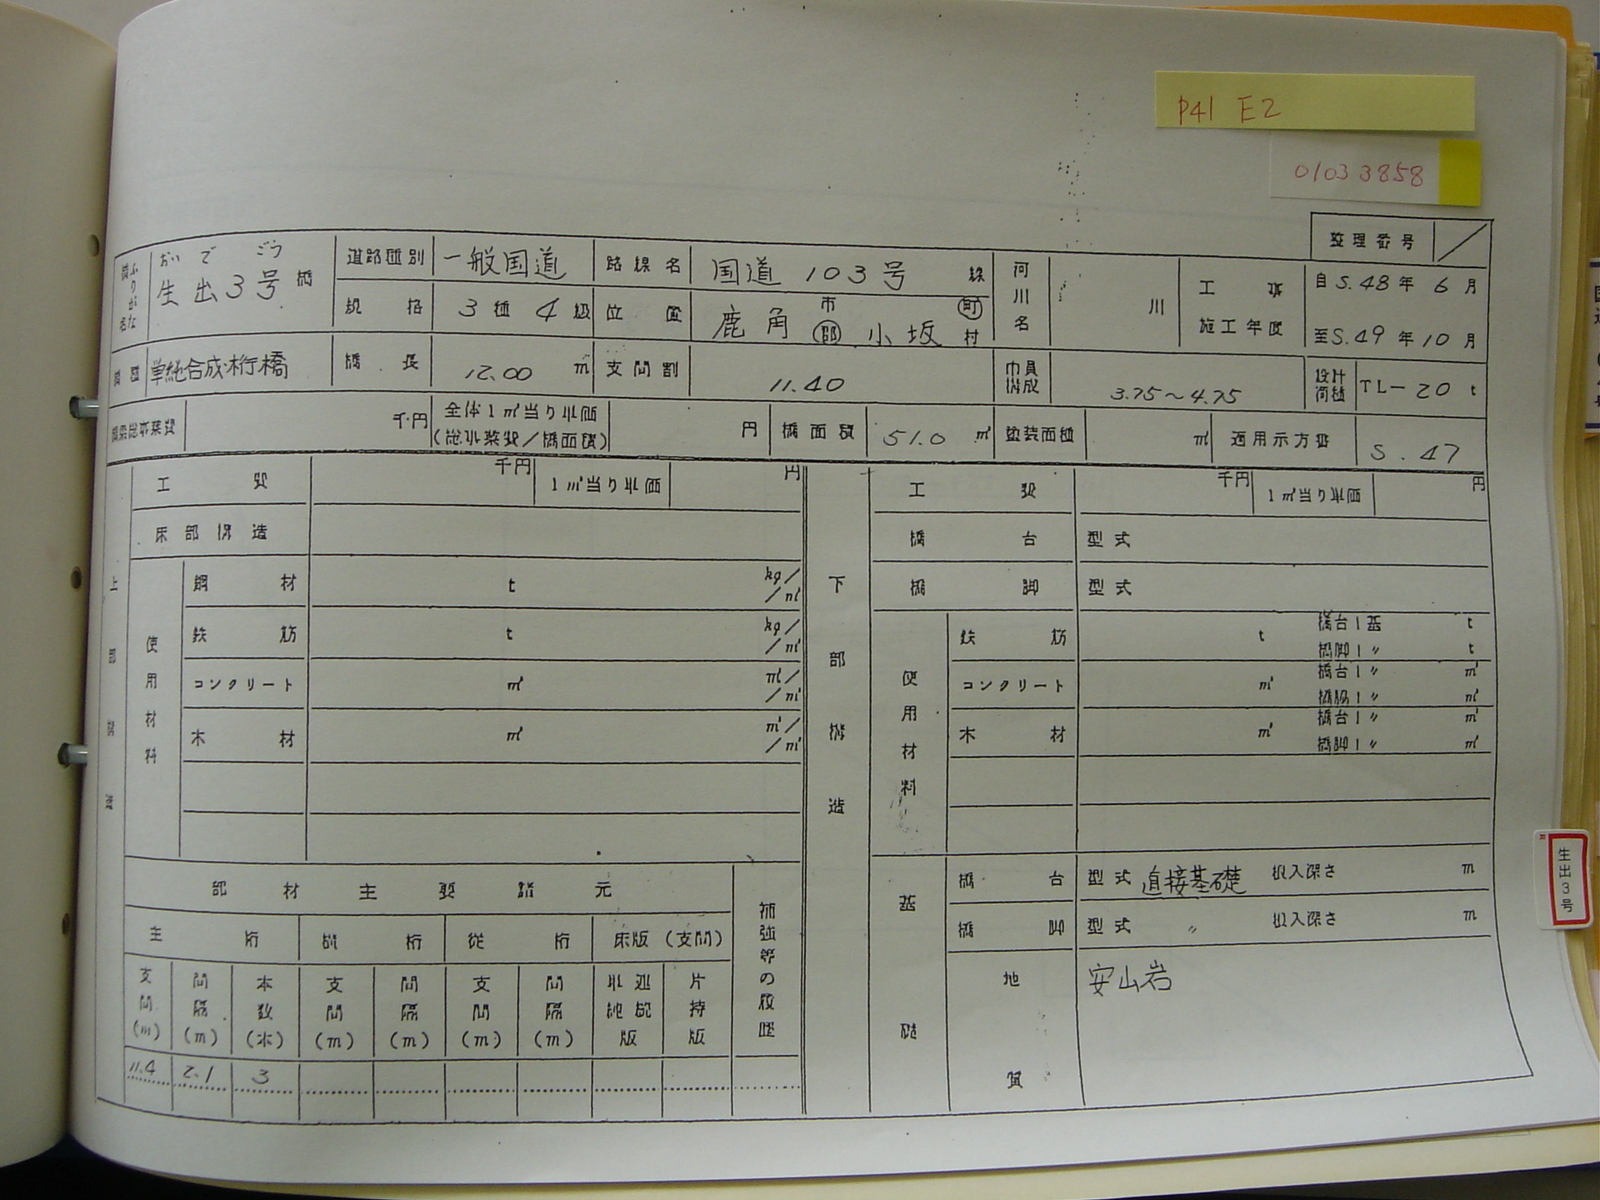 P41 E2
01033858
整理番号
ふりがな
橋名
おいで ごう
生出3号 橋
道路種別
一般国道
路線名
国道 103号 線
河川名
川
工事
施工年度
自 S.48 年 6 月
至 S.49 年 10 月
規格
3 種 4 級
位置
鹿角 市 郡 小坂 町 村
橋種
単純合成桁橋
橋長
12.00 m
支間割
11.40
巾員構成
3.75～4.75
設計荷重
TL-20 t
橋梁総事業費
千円
全体1㎡当り単価
(総事業費/橋面積)
円
橋面積
51.0 ㎡
塗装面積
㎡
適用示方書
S.47
上部構造
工費
千円
1㎡当り単価
円
床部構造
使用材料
鋼材
t
kg/
/㎡
鉄筋
t
kg/
/㎡
コンクリート
㎥
㎥/
/㎡
木材
㎥
㎥/
/㎡
部材主要諸元
補強等の履歴
主桁
縦桁
床版 (支間)
支間(m)
間隔(m)
本数(本)
支間(m)
間隔(m)
支間(m)
間隔(m)
片持版
11.4
2.1
3
下部構造
工費
千円
1㎡当り単価
円
橋台
型式
橋脚
型式
使用材料
鉄筋
t
橋台1基 t
橋脚1〃 t
コンクリート
㎥
橋台1〃 ㎥
橋脚1〃 ㎥
木材
㎥
橋台1〃 ㎥
橋脚1〃 ㎥
基礎
橋台
型式 直接基礎 根入深さ m
橋脚
型式 〃 根入深さ m
地質
安山岩
生出3号